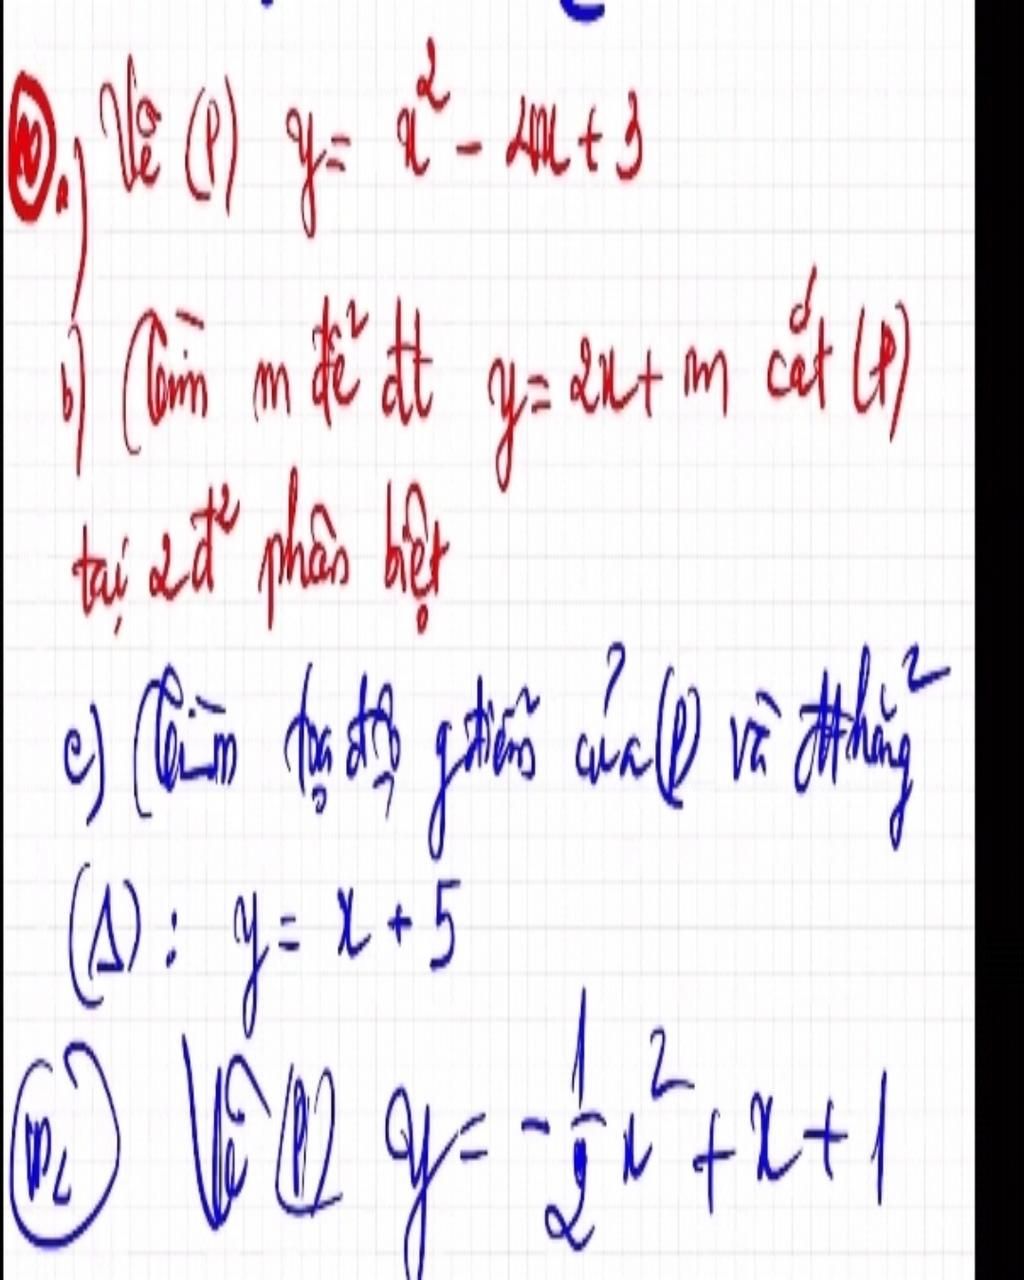 a) Vẽ (P) y = x² - 4x + 3
b) Tìm m để đt y = 2x + m cắt (P)
tại 2 đ² phân biệt
c) Tìm tọa độ gđiểm của (P) và đthẳng²
(Δ): y = x + 5
Vẽ (P) y = -1/2 x² + x + 1